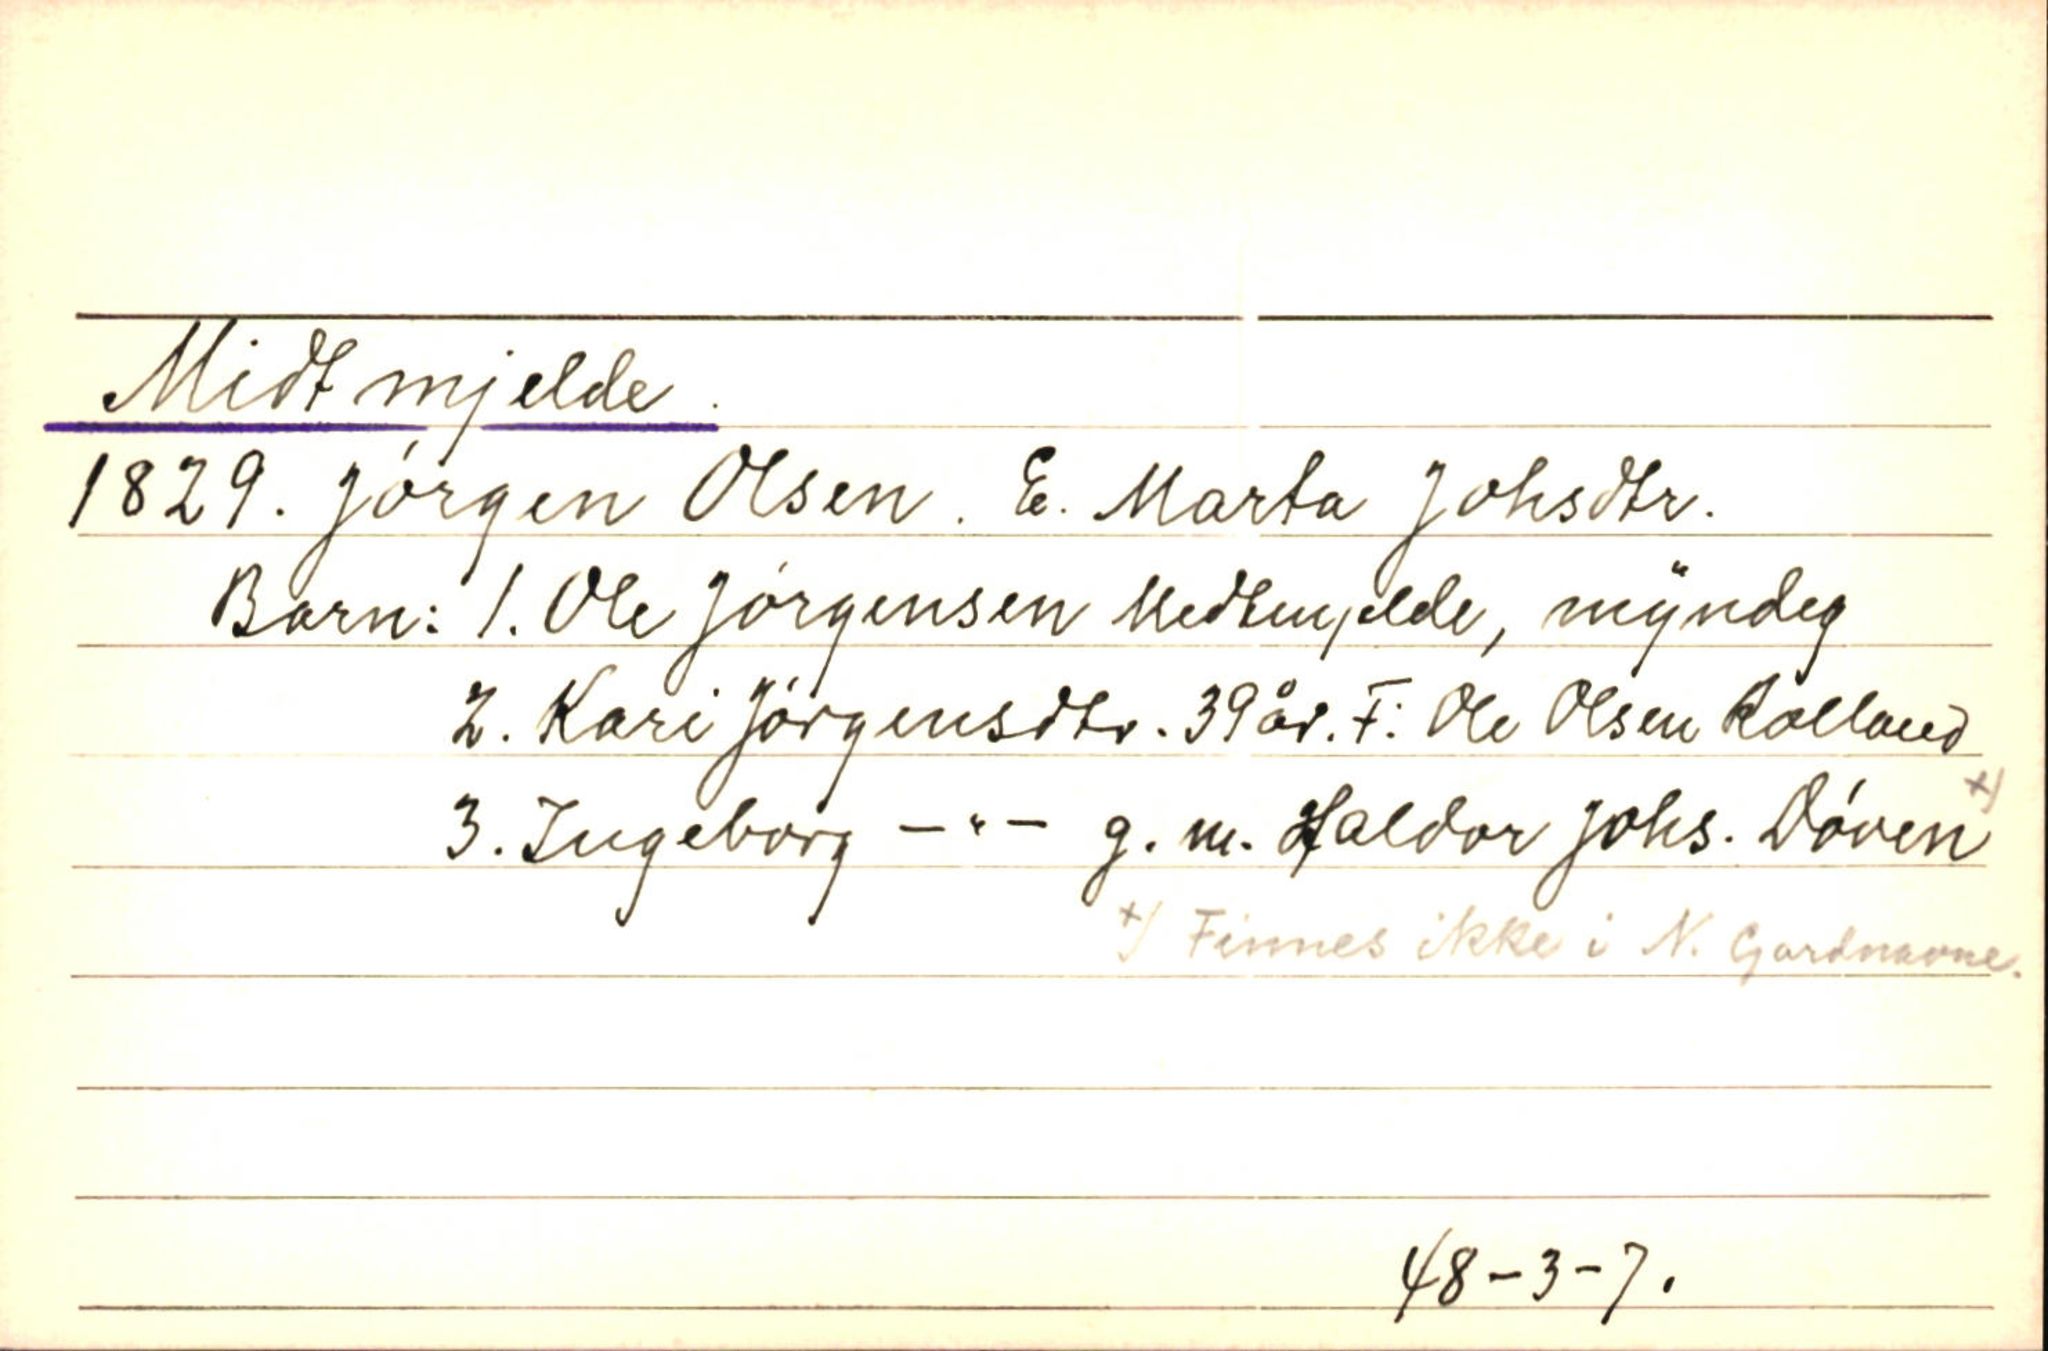 Midtmjelde.
1829. Jørgen Olsen. E. Marta Johsdtr.
Barn: 1. Ole Jørgensen Medtmjelde, mÿndig
2. Kari Jørgensdtr. 39 år. F: Ole Olsen Rolland
3. Ingeborg —"— g. m. Haldor Johs. Døven +)
+) Finnes ikke i N. Gardnavne.
48-3-7.